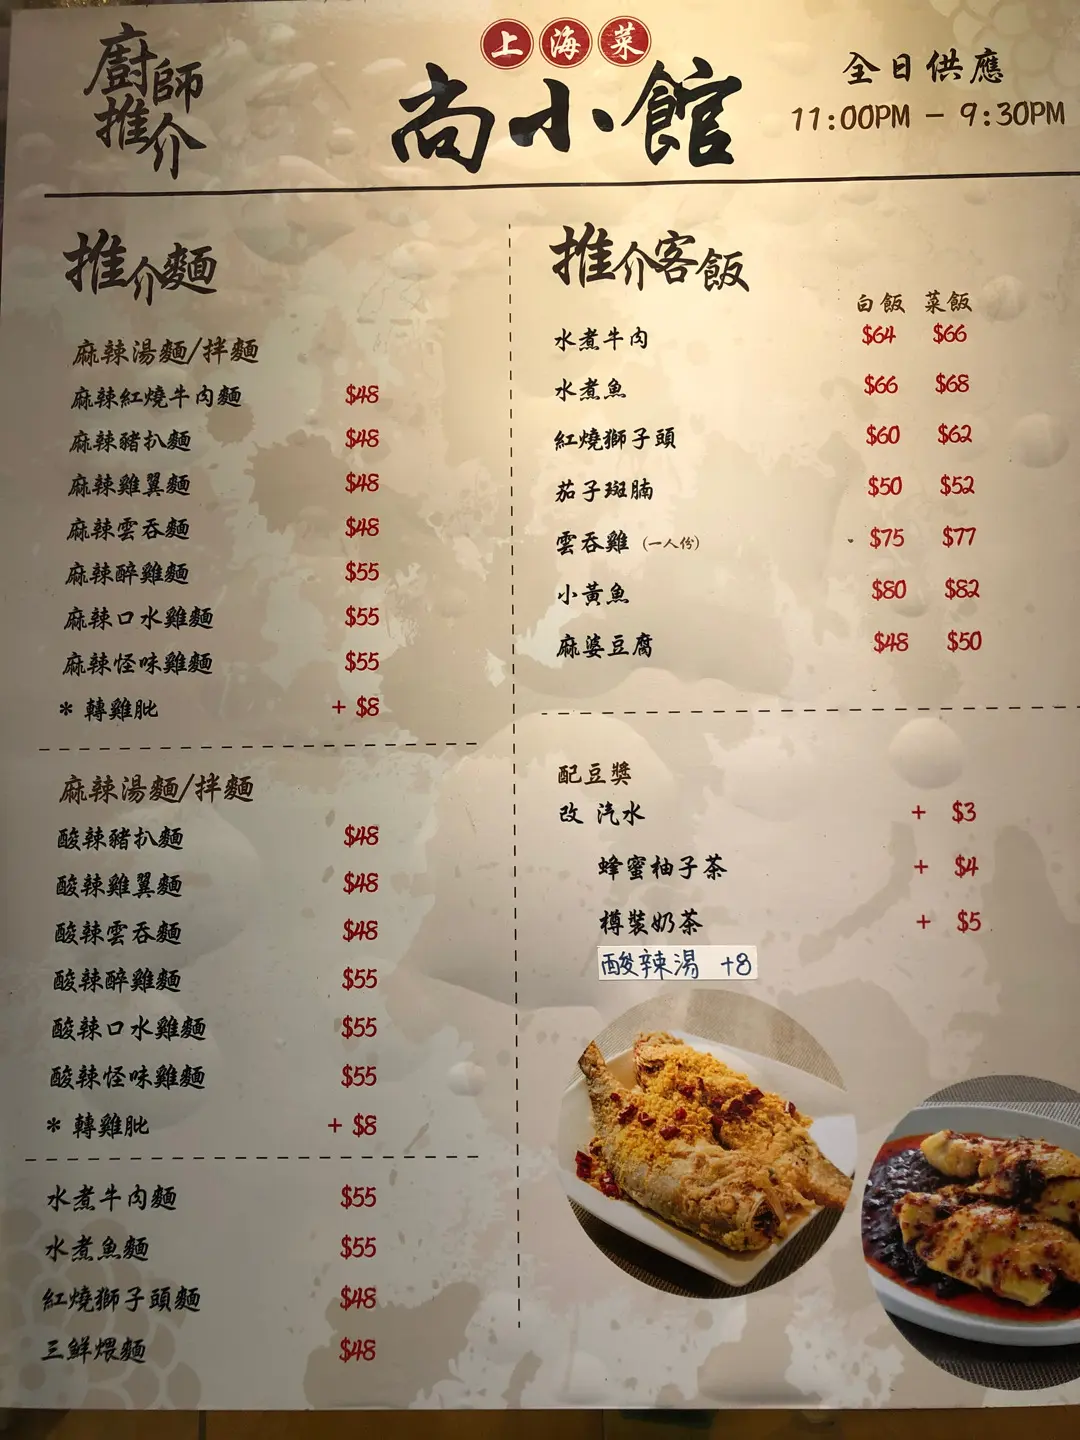 廚師推介
上海菜
尚小館
全日供應
11:00PM - 9:30PM
推介麵
麻辣湯麵/拌麵
麻辣紅燒牛肉麵 $48
麻辣豬扒麵 $48
麻辣雞翼麵 $48
麻辣雲吞麵 $48
麻辣醉雞麵 $55
麻辣口水雞麵 $55
麻辣怪味雞麵 $55
* 轉雞肶 + $8
麻辣湯麵/拌麵
酸辣豬扒麵 $48
酸辣雞翼麵 $48
酸辣雲吞麵 $48
酸辣醉雞麵 $55
酸辣口水雞麵 $55
酸辣怪味雞麵 $55
* 轉雞肶 + $8
水煮牛肉麵 $55
水煮魚麵 $55
紅燒獅子頭麵 $48
三鮮煨麵 $48
推介客飯
白飯 菜飯
水煮牛肉 $64 $66
水煮魚 $66 $68
紅燒獅子頭 $60 $62
茄子斑腩 $50 $52
雲吞雞 (一人份) $75 $77
小黃魚 $80 $82
麻婆豆腐 $48 $50
配豆獎
改 汽水 + $3
蜂蜜柚子茶 + $4
樽裝奶茶 + $5
酸辣湯 +8